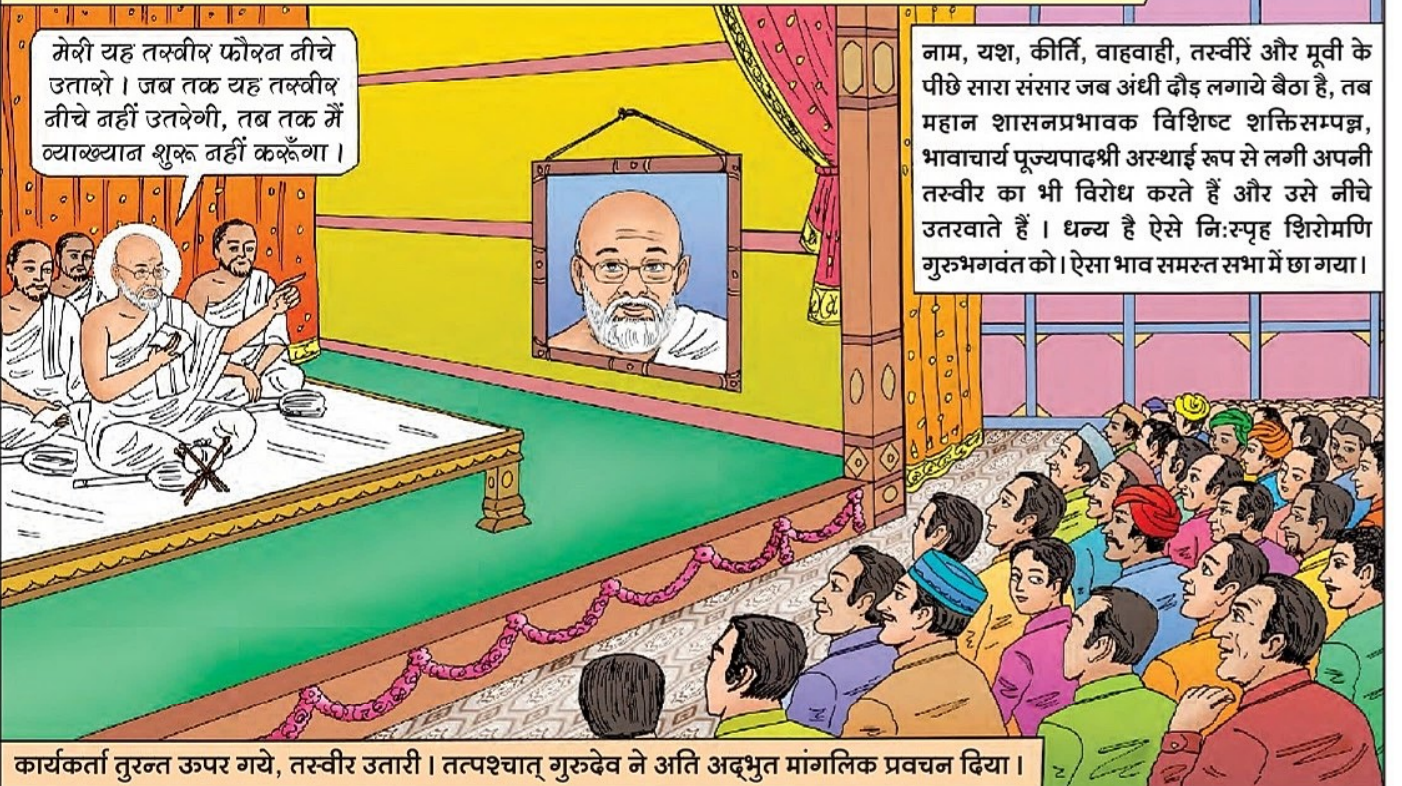 मेरी यह तस्वीर फौरन नीचे
उतारो । जब तक यह तस्वीर
नीचे नहीं उतरेगी, तब तक मैं
व्याख्यान शुरू नहीं करूँगा ।
नाम, यश, कीर्ति, वाहवाही, तस्वीरें और मूवी के
पीछे सारा संसार जब अंधी दौड़ लगाये बैठा है, तब
महान शासनप्रभावक विशिष्ट शक्तिसम्पन्न,
भावाचार्य पूज्यपादश्री अस्थाई रूप से लगी अपनी
तस्वीर का भी विरोध करते हैं और उसे नीचे
उतरवाते हैं । धन्य है ऐसे नि:स्पृह शिरोमणि
गुरुभगवंत को । ऐसा भाव समस्त सभा में छा गया ।
कार्यकर्ता तुरन्त ऊपर गये, तस्वीर उतारी । तत्पश्चात् गुरुदेव ने अति अद्‌भुत मांगलिक प्रवचन दिया ।